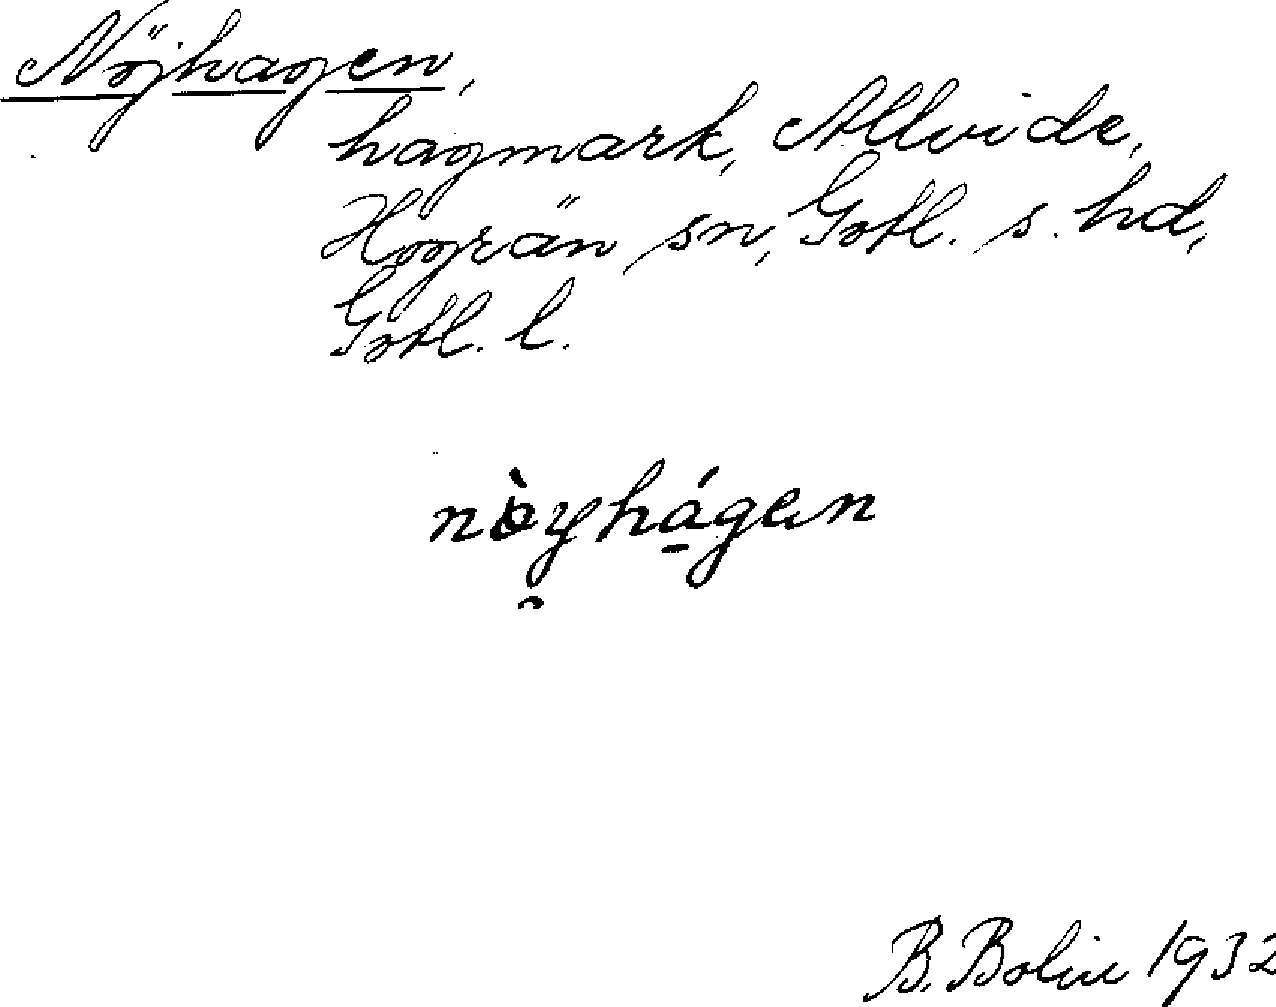 Nöjhagen,
hagmark, Allvide,
Hogrän sn, Gotl. s. hd,
Gotl. l.
nòy̯há̱gan
B. Bolin 1932